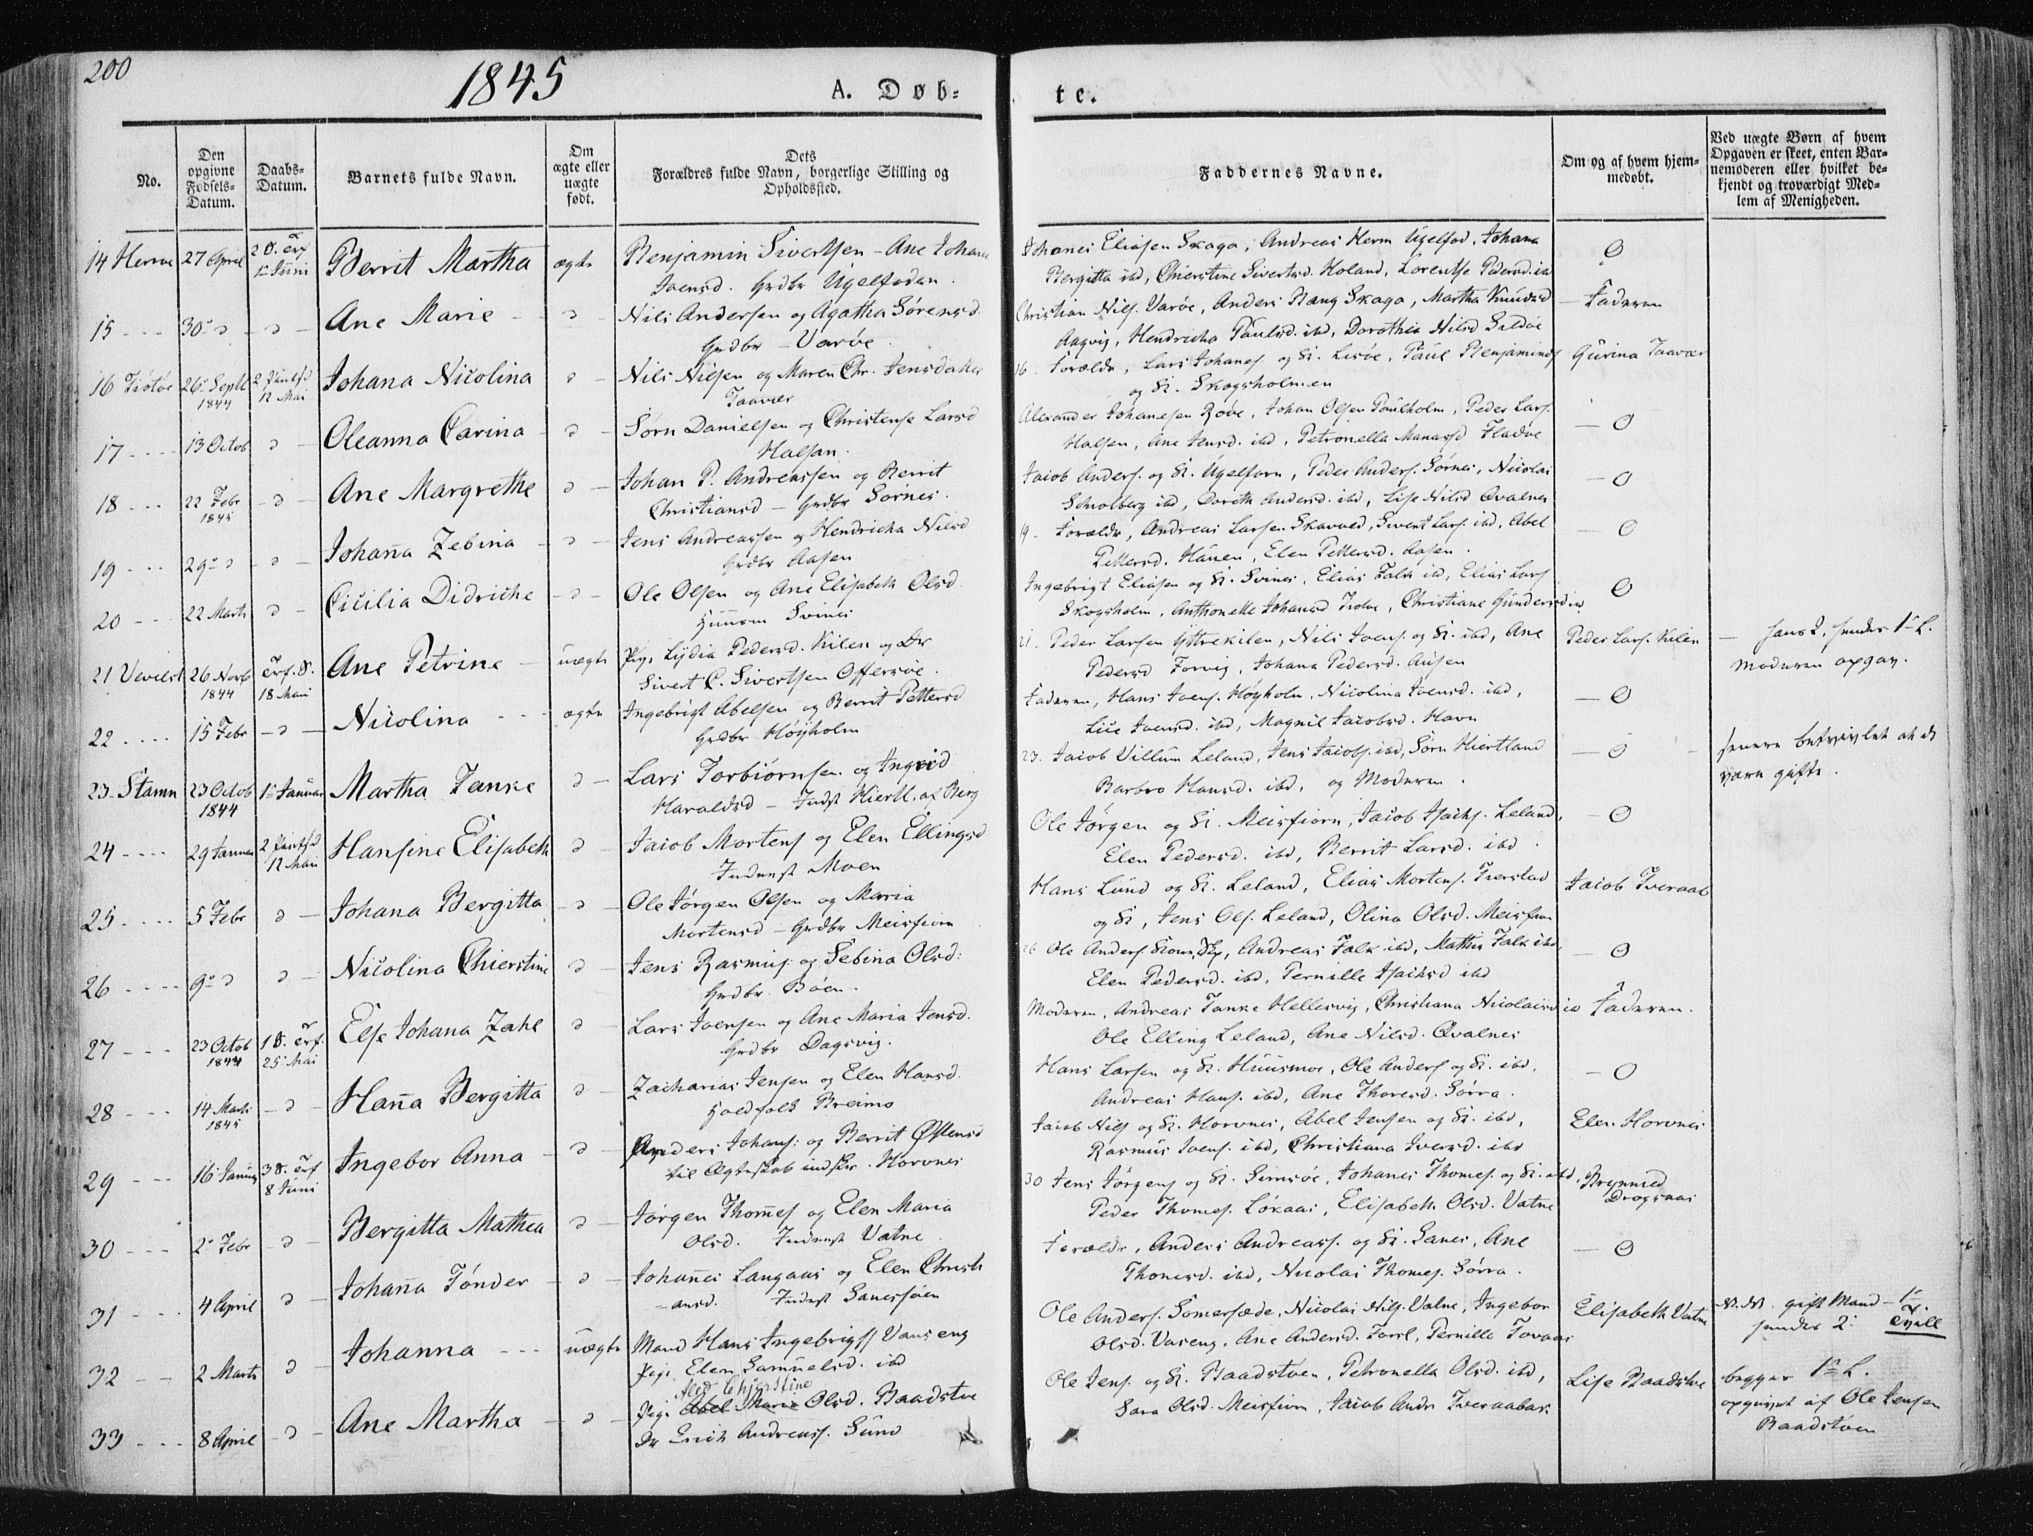 200
1845
A. Døb-
te.
No.
Den opgivne Fødsels-Datum.
Daabs-Datum.
Barnets fulde Navn.
Om ægte eller uægte født.
Dets Forældres fulde Navn, borgerlige Stilling og Opholdssted.
Faddernes Navne.
Om og af hvem hjem-medøbt.
Ved uægte Børn af hvem Opgaven er skeet, enten Bar-nemoderen eller hvilket be-kjendt og troværdigt Med-lem af Menigheden.
14 Herrøe 27 April Berrit Martha ægte Benjamin Sivertsen - Ane Johana
Grdbr Ugelfoden.
Johanes Eliasen Skaga, Andreas Herm Ugelfod, Johana
Bergitta ibd, Chierstine Sivertsd. Holand, Lorentse Pedersd. ib
15 30 Ane Marie Nils Andersen og Agatha Sørensd.
Grdbr - Varøe.
Christian Nils. Varøe, Anders Bang Skaga, Martha Knudsd Faderen
Aagvig, Hendricha Paulsd. ibd, Dorothea Nilsd
16 Tiøtøe 26 Septb 1844 12 Mai Johana Nicolina Nils Nilsen og Maren Chr. Jensdatter
Taavær
16. Forældr, Lars Johanes. og K. Lisøe, Paul Benjamins Gurina Taavær
og K. Skogsholmen
17 13 Octob Oleanna Carina Sørn Danielsen og Christense Larsd
Halsan.
Alexander Johanesen Røøe, Johan Olsen Paulholm, Peder Lars.
Halsen, Ane Jensd. ibd, Petronella Manassd Fladøe
18 22 Febr 1845 Ane Margrethe Johan P. Andreassen og Berrit
Christiansd - Grdbr Sørnes.
Jacob Anders. og K. Ugelforn, Peder Anders. Sørnes, Nicolai
Scholberg ibd, Doreth Andersd. ibd, Lise Nilsd Qvalnes
19 29 Johana Zebina Jens Andreassen og Hendricha Nilsd
Grdbr Aasen
19. Forældr, Andreas Larsen Skavved, Sivert Lars. ibd, Abel
Pettersd. Hauen, Elen Pettersd. Aasen.
20 22 Marts Cicilia Didriche Ole Olsen og Ane Elisabeth Olsd.
Huusm Svines
Ingebrigt Eliasen og K. Svines, Elias Falk ibd, Elias Lars
Skogsholm, Anthonette Johansd, Christiane Gundersd ib
21 Vevelst 26 Novb 1844 18 Mai Ane Petrine uægte Pige Lydia Pedersd. Kilen og Dr
Sivert C. Sivertsen Offersøe.
21. Peder Larsen Yttrekilen, Nils Joens. og K. ibd, Ane Peder Lars. Kilen
Pedersd Forvig, Johana Pedersd. Ausen
hans 2, hendes 1ste L.
Moderen opgav.
22 15 Febr Nicolina ægte Ingebrigt Abelsen og Berrit Pettersd
Grdbr Høyholm
Faderen, Hans Joens. Høyholm, Nicolina Joensd. ibd,
Lise Joensd. ibd, Magnil Jacobsd. Havn
23 Stamn 23 Octob 1844 1 Januar Martha Tanke Lars Torbiørnsen og Ingrid
Haraldsd - Indst Hiertl. af Berg
23. Jacob Villum Leland, Jens Jacobs. ibd, Sørn Hiertland
Barbro Hansd. ibd, og Moderen.
senere betvivlet at de
være gifte.
24 29 Januar 12 Mai Hansine Elisabeth Jacob Mortens og Elen Ellingsd
Inderst Moen
Ole Jørgen og K. Meisfiorn, Jacob Isachs. Leland,
Elen Pedersd. ibd, Berrit Larsd. ibd.
25 5 Febr Johana Bergitta Ole Jørgen Olsen og Maria
Mortensd - Grdbr Meisfiorn
Hans Lund og K. Leland, Elias Mortens. Tverslad Jacob Tveraab
og K, Jens Ols. Leland, Olina Olsd. Meisfiorn
26 9 Nicolina Chierstine Jens Rasmus. og Sebina Olsd:
Grdbr. Bøen.
26 Ole Anders., Andreas Falk ibd, Mathis Falk ibd,
Elen Pedersd. ibd, Pernille Isachsd ibd
27 23 Octob 1844 25 Mai Else Johana Zahl Lars Joensen og Ane Maria Jensd.
Grdbr Dagsvig.
Moderen, Andreas Tanke Hellesvig, Christiana Nicolaisd ib Faderen.
Ole Elling Leland, Ane Nilsd. Qvalnes
28 14 Marts 1845 Hana Bergitta Zacharias Jensen og Elen Hansd.
Holdfolk Breimo
Hans Larsen og K. Huusmoe, Ole Anders og K. ibd,
Andreas Hans. ibd, Ane Thoresd. Sørra.
29 16 Januar 8 Juni Ingebor Anna Anders Johans. og Berrit Østensd
til Ægteskab indskr. Horvnes
Jacob Nils og K. Horvnes, Abel Jensen og K. ibd, Elen Horvnes
Rasmus Ivers. ibd, Christiana Iversd. ibd
30 2 Febr Bergitta Mathea Jørgen Thomes og Elen Maria
Olsd. Inderst Vatne
30 Jens Jørgens og K. Simsøe, Johanes Thomes. og K. ibd, Brynnild Drogsaas
Peder Thomes. Løkaas, Elisabeth Olsd. Vatne
31 4 April Johana Tønder Johanes Langaas og Elen Christi
-ansd. Inderst Sanessøen
Forældr, Anders Andreass. og K. Sanes, Ane
Thomesd. ibd, Nicolai Thomes. Sørra.
32 2 Marts Johanna uægte Mand Hans Ingebrigts Varseng
Pige Elen Samuelsd. ibd
Ole Anders. Somersæde, Nicolai Nils. Vatne, Ingebor Elisabeth Vatne
Olsd. Vaseng, Ane Andersd. Forsl, Pernilla Tovaas
N.N. gift Mand - 1ste
hendes 2.
33 8 April Ane Martha Pige Abel Marie Olsd. Baadstøe
Aled Chjerstine
Dr Erich Andreass. Sund
Ole Jens. og K. Baadstøen, Petronella Olsd. ibd, Lise Baadstøe
Sara Olsd. Meisfiorn, Jacob Andr Tveraabak
begges 1ste L.
opgivet af Ole Jensen
Baadstøen